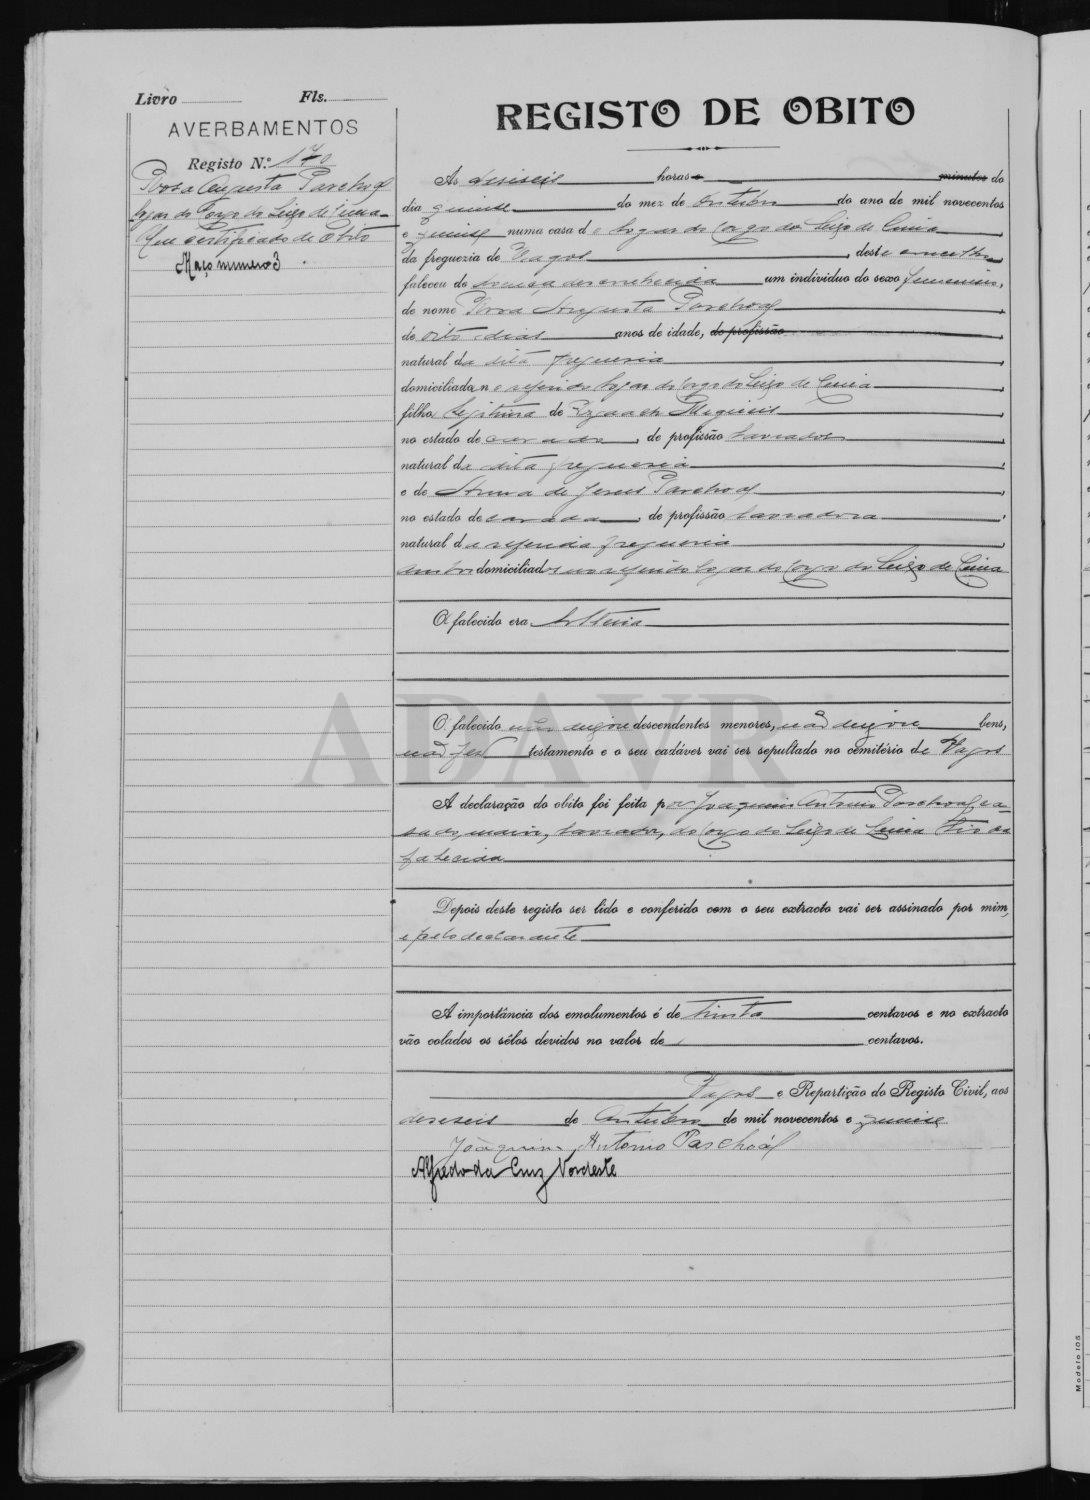 Livro Fls.
AVERBAMENTOS
Registo N.º 170
Rosa Augusta Paschoal
lugar do Corgo do Seixo de Cima
Um certificado de obito
Maço numero 3
REGISTO DE OBITO
Às deseseis horas minutos do
dia quinse do mez de Outubro do ano de mil novecentos
e quinse numa casa do logar do Corgo do Seixo de Cima
da freguezia de Vagos, deste concelho
faleceu de doença desconhecida um individuo do sexo femenino,
de nome Rosa Augusta Paschoal
de oito dias anos de idade, de profissão
natural da dita freguesia
domiciliada no referido logar do Corgo do Seixo de Cima
filha legitima de
no estado de casado, de profissão lavrador
natural da dita freguesia
e de Anna de Jesus Paschoal
no estado de casada, de profissão lavradora
natural da referida freguesia
ambos domiciliados no referido logar do Corgo do Seixo de Cima
O falecido era solteira
O falecido não deixou descendentes menores, não deixou bens,
não fez testamento e o seu cadáver vai ser sepultado no cemitério de Vagos
A declaração do obito foi feita por Joaquim Antonio Paschoal, ca-
sado, maior, lavrador, do Corgo do Seixo de Cima tio da
falecida
Depois deste registo ser lido e conferido com o seu extracto vai ser assinado por mim,
e pelo declarante
A importância dos emolumentos é de trinta centavos e no extracto
vão colados os sêlos devidos no valor de centavos.
Vagos e Repartição do Registo Civil, aos
deseseis de Outubro de mil novecentos e quinse
Joaquim Antonio Paschoal
Alfredo da Cruz Nordeste
ADAVR
Modelo 105